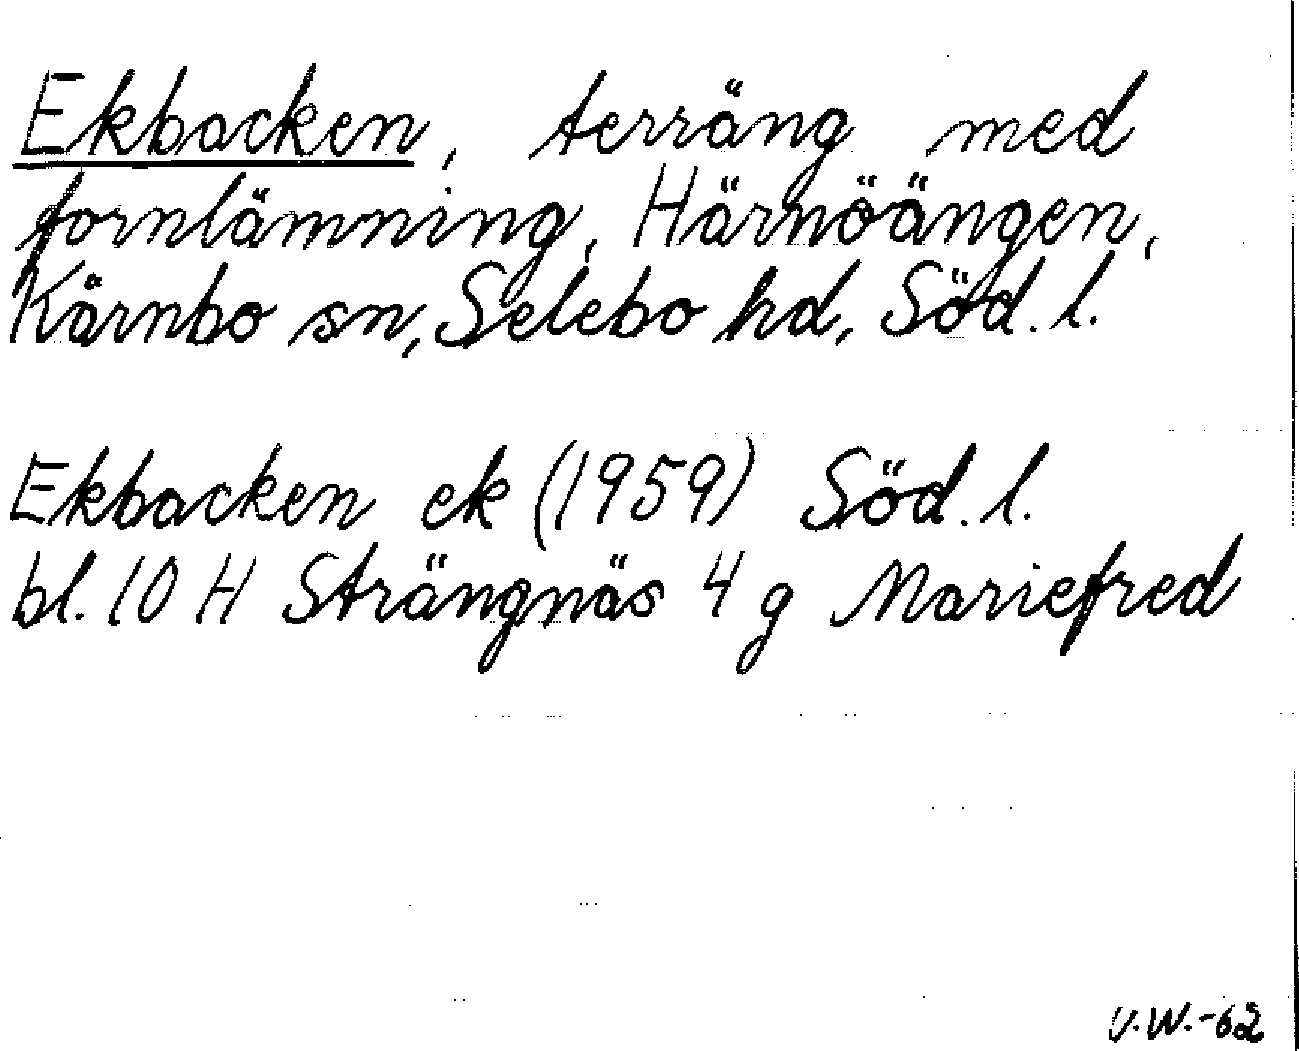 Ekbacken, terräng med
fornlämning, Härnöängen,
Kärnbo sn, Selebo hd, Söd. l.
Ekbacken ek (1959) Söd. l.
bl. 10 H Strängnäs 4 g Mariefred
V.W.-62